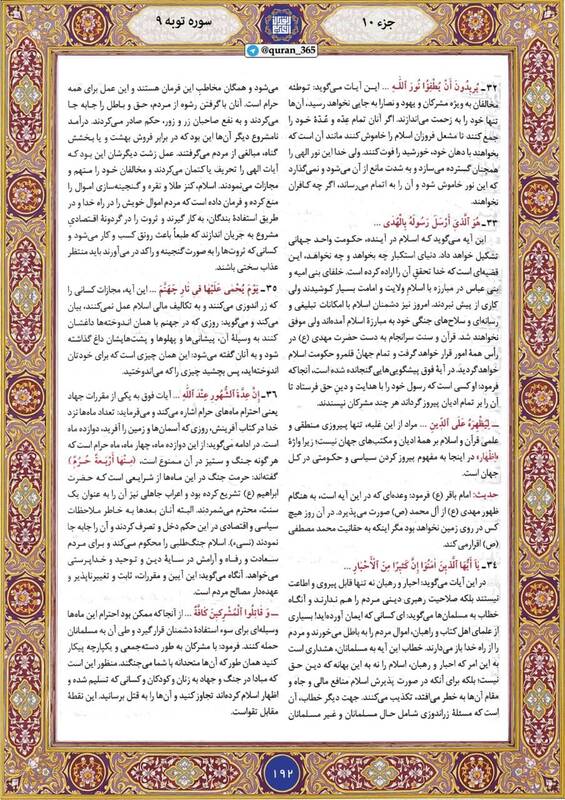 جزء ۱۰
سوره توبه ۹
@quran_365
۳۲ـ یُرِیدُونَ أَنْ یُطْفِؤُا نُورَ اللّٰهِ ... این آیات می‌گوید: توطئه
مخالفان به ویژه مشرکان و یهود و نصارا به جایی نخواهد رسید، آن‌ها
تنها خود را به زحمت می‌اندازند. اگر آنان تمام عِدّه و عُدّهٔ خود را
جمع کنند تا مشعل فروزان اسلام را خاموش کنند مانند آن است که
بخواهند با دهان خود، خورشید را فوت کنند. ولی خدا این نور الهی را
همچنان گسترده می‌سازد و به شدت مانع از آن می‌شود و نمی‌گذارد
که این نور خاموش شود و آن را به اتمام می‌رساند، اگر چه کافران
نخواهند.
۳۳ـ هُوَ الَّذِیٓ أَرْسَلَ رَسُولَهُ بِالْهُدَىٰ ...
این آیه می‌گوید که اسلام در آینده، حکومت واحد جهانی
تشکیل خواهد داد. دنیای استکبار چه بخواهد و چه نخواهد، این
قضیه‌ای است که خدا تحقق آن را اراده کرده است. خلفای بنی امیه و
بنی عباس در مبارزه با اسلام ولایت و امامت بسیار کوشیدند ولی
کاری از پیش نبردند. امروز نیز دشمنان اسلام با امکانات تبلیغی و
رسانه‌ای و سلاح‌های جنگی خود به مبارزهٔ اسلام آمده‌اند ولی موفق
نخواهند شد. قرآن و سنت سرانجام به دست حضرت مهدی (ع) در
رأس همهٔ امور قرار خواهد گرفت و تمام جهان قلمرو حکومت اسلام
خواهد گردید. در آیهٔ فوق پیشگویی‌هایی گنجانده شده است، آنجا که
فرمود: او کسی است که رسول خود را با هدایت و دین حق فرستاد تا
آن را بر تمام ادیان پیروز گرداند هر چند مشرکان نپسندند.
ـ لِیُظْهِرَهُ عَلَى الدِّینِ ... مراد از این غلبه، تنها پیروزی منطقی و
علمی قرآن و اسلام بر همهٔ ادیان و مکتب‌های جهان نیست؛ زیرا واژهٔ
«إظهار» در اینجا به مفهوم پیروز کردن سیاسی و حکومتی در کل
جهان است.
حدیث: امام باقر (ع) فرمود: وعده‌ای که در این آیه است، به هنگام
ظهور مهدی (ع) از آل محمد (ص) صورت می‌پذیرد. در آن روز هیچ
کس در روی زمین نخواهد بود مگر اینکه به حقانیت محمد مصطفی
(ص) اقرار می کند.
۳۴ـ یَا أَیُّهَا الَّذِینَ آمَنُوٓا إِنَّ کَثِیرًا مِنَ الْأَحْبَارِ ...
در این آیات می‌گوید: احبار و رهبان نه تنها قابل پیروی و اطاعت
نیستند بلکه صلاحیت رهبری دینی مردم را هم ندارند و آنگاه
خطاب به مسلمان‌ها می‌گوید: ای کسانی که ایمان آورده‌اید! بسیاری
از علمای اهل کتاب و راهبان، اموال مردم را به باطل می‌خورند و مردم
را از راه خدا باز می‌دارند. خطاب این آیه به مسلمانان، هشداری است
به این امر که احبار و رهبان، اسلام را نه به این بهانه که دین حق
نیست؛ بلکه برای آنکه در صورت پذیرش اسلام منافع مالی و جاه و
مقام آن‌ها به خطر می‌افتد، تکذیب می‌کنند. جهت دیگر خطاب، آن
است که مسئلهٔ زراندوزی شامل حال مسلمانان و غیر مسلمانان
می‌شود و همگان مخاطبِ این فرمان هستند و این عمل برای همه
حرام است. آنان با گرفتن رشوه از مردم، حق و باطل را جابه جا
می‌کردند و به نفع صاحبان زر و زور، حکم صادر می‌کردند. درآمد
نامشروع دیگر آن‌ها این بود که در برابر فروش بهشت و یا بخشش
گناه، مبالغی از مردم می‌گرفتند. عمل زشت دیگرشان این بود که
آیات الهی را تحریف یا کتمان می‌کردند و مخالفان خود را متهم و
مجازات می‌نمودند. اسلام، کنز طلا و نقره و گنجینه‌سازی اموال را
منع کرده و فرمان داده است که مردم اموال خویش را در راه خدا و در
طریق استفادهٔ بندگان، به کار گیرند و ثروت را در گردونهٔ اقتصادیِ
مشروع به جریان اندازند که طبعاً باعث رونق کسب و کار می‌شود و
کسانی که ثروت‌ها را به صورت گنجینه و راکد در می‌آورند باید منتظر
عذاب سختی باشند.
۳۵ـ یَوْمَ یُحْمَىٰ عَلَیْهَا فِی نَارِ جَهَنَّمَ ... این آیه، مجازات کسانی را
که زر اندوزی می‌کنند و به تکالیف مالی اسلام عمل نمی‌کنند، بیان
می‌کند و می‌گوید: روزی که در جهنم با همان اندوخته‌ها داغشان
کنند به وسیلهٔ آن، پیشانی‌ها و پهلوها و پشت‌هایشان داغ گذاشته
شود و به آنان گفته می‌شود: این همان چیزی است که برای خودتان
اندوخته‌اید، پس بچشید چیزی را که می‌اندوختید.
۳۶ـ إِنَّ عِدَّةَ الشُّهُورِ عِنْدَ اللّٰهِ ... آیات فوق به یکی از مقررات جهاد
یعنی احترام ماه‌های حرام اشاره می‌کند و می‌فرماید: تعداد ماه‌ها نزد
خدا در کتاب آفرینش، روزی که آسمان‌ها و زمین را آفرید، دوازده ماه
است. در ادامه می‌گوید: از این دوازده ماه، چهار ماه، ماه حرام است که
هر گونه جنگ و ستیز در آن ممنوع است، (مِنْهَآ أَرْبَعَةٌ حُرُمٌ)
گفته‌اند: حرمت جنگ در این ماه‌ها از شرایعی است که حضرت
ابراهیم (ع) تشریع کرده بود و اعراب جاهلی نیز آن را به عنوان یک
سنت، محترم می‌شمردند. البته آنان بعدها به خاطر ملاحظات
سیاسی و اقتصادی در این حکم دخل و تصرف کردند و آن را جابه جا
نمودند (نسیء). اسلام جنگ‌طلبی را محکوم می‌کند و برای مردم
سعادت و رفاه و آرامش در سایهٔ دین و توحید و خداپرستی
می‌خواهد. آنگاه می‌گوید: این آیین و مقررات، ثابت و تغییرناپذیر و
عهده‌دار مصالح مردم است.
ـ وَ قَاتِلُوا الْمُشْرِکِینَ کَآفَّةً ... از آنجا که ممکن بود احترام این ماه‌ها
وسیله‌ای برای سوء استفادهٔ دشمنان قرار گیرد و طی آن به مسلمانان
حمله کنند. فرمود: با مشرکان به طور دسته‌جمعی و یکپارچه پیکار
کنید همان طور که آن‌ها متحدانه با شما می‌جنگند. منظور این است
که مبادا در جنگ و جهاد به زنان و کودکان و کسانی که تسلیم شده و
اظهار اسلام کرده‌اند تجاوز کنید و آن‌ها را به قتل برسانید. این نقطهٔ
مقابل تقواست.
۱۹۲